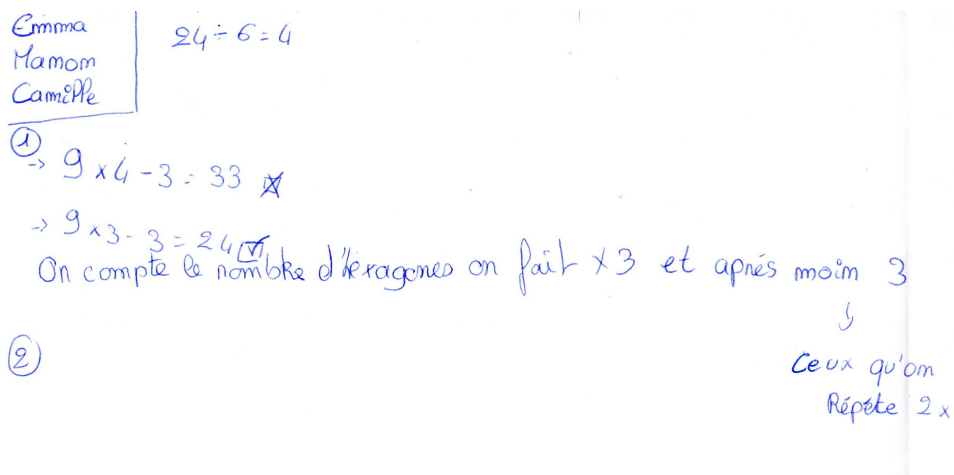 Emma
Mamom
Camille
24 ÷ 6 = 4
①
-> 9 x 4 - 3 = 33 ☒
-> 9 x 3 - 3 = 24 ☑
On compte le nombke d'hexagones on fait x 3 et aprés moim 3
↳
Ceux qu'om
Répète 2 x
②